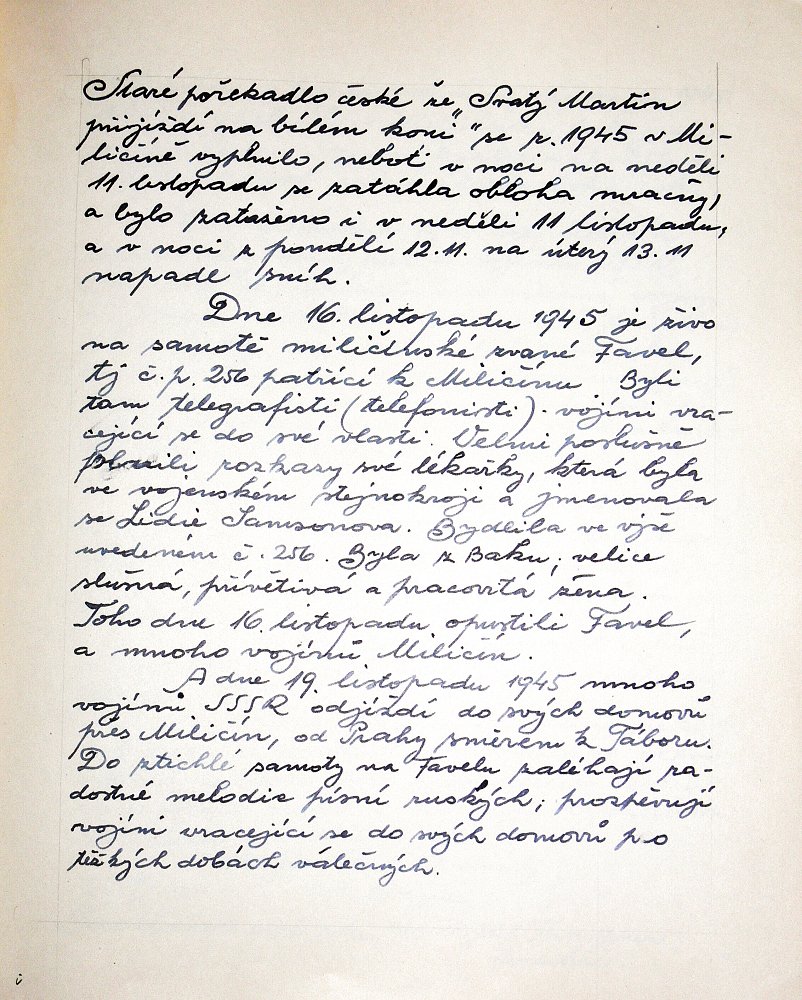 Staré pořekadlo české že „Svatý Martin
přijíždí na bílém koni" se r. 1945 v Mi-
ličíně vyplnilo, neboť v noci na neděli
11. listopadu se zatáhla obloha mračny,
a bylo zataženo i v neděli 11 listopadu,
a v noci z pondělí 12.11. na úterý 13.11
napadl sníh.
Dne 16. listopadu 1945 je živo
na samotě miličínské zvané Favel,
tj č.p. 256 patřící k Miličínu Byli
tam telegrafisti (telefonisti). vojíni vra-
cející se do své vlasti. Velmi poslušně
plnili rozkazy své lékařky, která byla
ve vojenském stejnokroji a jmenovala
se Lidie Samsonova. Bydlila ve výše
uvedeném č. 256. Byla z Baku; velice
slušná, přívětivá a pracovitá žena.
Toho dne 16. listopadu opustili Favel,
a mnoho vojínů Miličín.
A dne 19. listopadu 1945 mnoho
vojínů SSSR odjíždí do svých domovů
přes Miličín, od Prahy směrem k Táboru.
Do ztichlé samoty na Favelu zaléhají ra-
dostné melodie písní ruských; prozpěvují
vojíni vracející se do svých domovů po
těžkých dobách válečných.